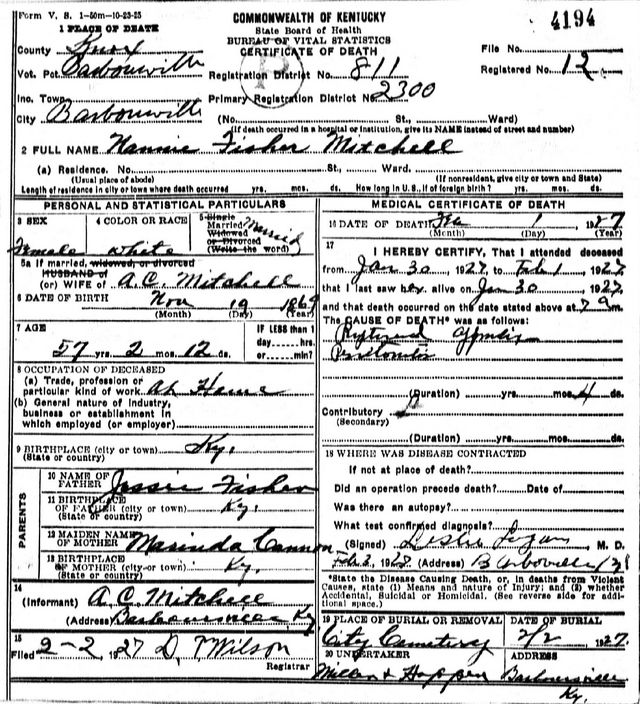 Form V. S. 1-50m-10-23-25
COMMONWEALTH OF KENTUCKY
State Board of Health
BUREAU OF VITAL STATISTICS
CERTIFICATE OF DEATH
4194
1 PLACE OF DEATH
County Knox
File No.
Vot. Pct. Barbourville
Registration District No. 811
Registered No. 12
Inc. Town
Primary Registration District No. 2300
City Barbourville
(No. St., Ward)
(If death occurred in a hospital or institution, give its NAME instead of street and number)
2 FULL NAME Nannie Fisher Mitchell
(a) Residence. No. St., Ward.
(Usual place of abode) (If nonresident, give city or town and State)
Length of residence in city or town where death occurred yrs. mos. ds. How long in U. S., if of foreign birth? yrs. mos. ds.
PERSONAL AND STATISTICAL PARTICULARS
3 SEX
Female
4 COLOR OR RACE
white
5 Single
Married
Widowed
or Divorced
(Write the word)
Married
5a If married, widowed, or divorced
HUSBAND of
(or) WIFE of A. C. Mitchell
6 DATE OF BIRTH Nov 19 1869
(Month) (Day) (Year)
7 AGE
57 yrs. 2 mos. 12 ds.
IF LESS than 1
day hrs.
or min?
8 OCCUPATION OF DECEASED
(a) Trade, profession or
particular kind of work At Home
(b) General nature of industry,
business or establishment in
which employed (or employer)
9 BIRTHPLACE (city or town) Ky.
(State or country)
PARENTS
10 NAME OF
FATHER Jessie Fisher
11 BIRTHPLACE
OF FATHER (city or town) Ky.
(State or country)
12 MAIDEN NAME
OF MOTHER Marinda Cannon
13 BIRTHPLACE
OF MOTHER (city or town) Ky.
(State or country)
14
(Informant) A. C. Mitchell
(Address) Ky
15
Filed 2-2 1927 D. T Wilson
Registrar
MEDICAL CERTIFICATE OF DEATH
16 DATE OF DEATH 1 1927
(Month) (Day) (Year)
17
I HEREBY CERTIFY, That I attended deceased
from Jan 30 1927 to Feb 1 1927
that I last saw her alive on Jan 30 1927
and that death occurred on the date stated above at 7 a m.
The CAUSE OF DEATH* was as follows:
(Duration) yrs. mos. 4 ds.
Contributory
(Secondary)
(Duration) yrs. mos. ds.
18 WHERE WAS DISEASE CONTRACTED
If not at place of death?
Did an operation precede death? Date of
Was there an autopsy?
What test confirmed diagnosis?
(Signed) Leslie Logan M. D.
Feb. 2, 1928 (Address) Barbourville
*State the Disease Causing Death, or, in deaths from Violent
Causes, state (1) Means and nature of Injury; and (2) whether
Accidental, Suicidal or Homicidal. (See reverse side for addi-
tional space.)
19 PLACE OF BURIAL OR REMOVAL
City Cemetery
DATE OF BURIAL
2/2 1927
20 UNDERTAKER
Miller & Hopper
ADDRESS
Barbourville
Ky.